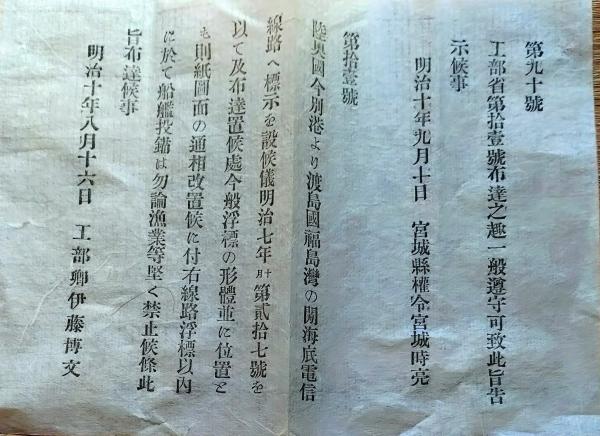 第九十號
工部省第拾壹號布達之趣一般遵守可致此旨告
示候事
明治十年九月十日　宮城縣權令宮城時亮
第拾壹號
陸奧國今別港より渡島國福島灣の間海底電信
線路へ標示を設候儀明治七年十月第貳拾七號を
以て及布達置候處今般浮標の形體並に位置と
も則紙圖面の通相改置候に付右線路浮標以內
に於て船艦投錨は勿論漁業等堅く禁止候條此
旨布達候事
明治十年八月十六日　工部卿伊藤博文